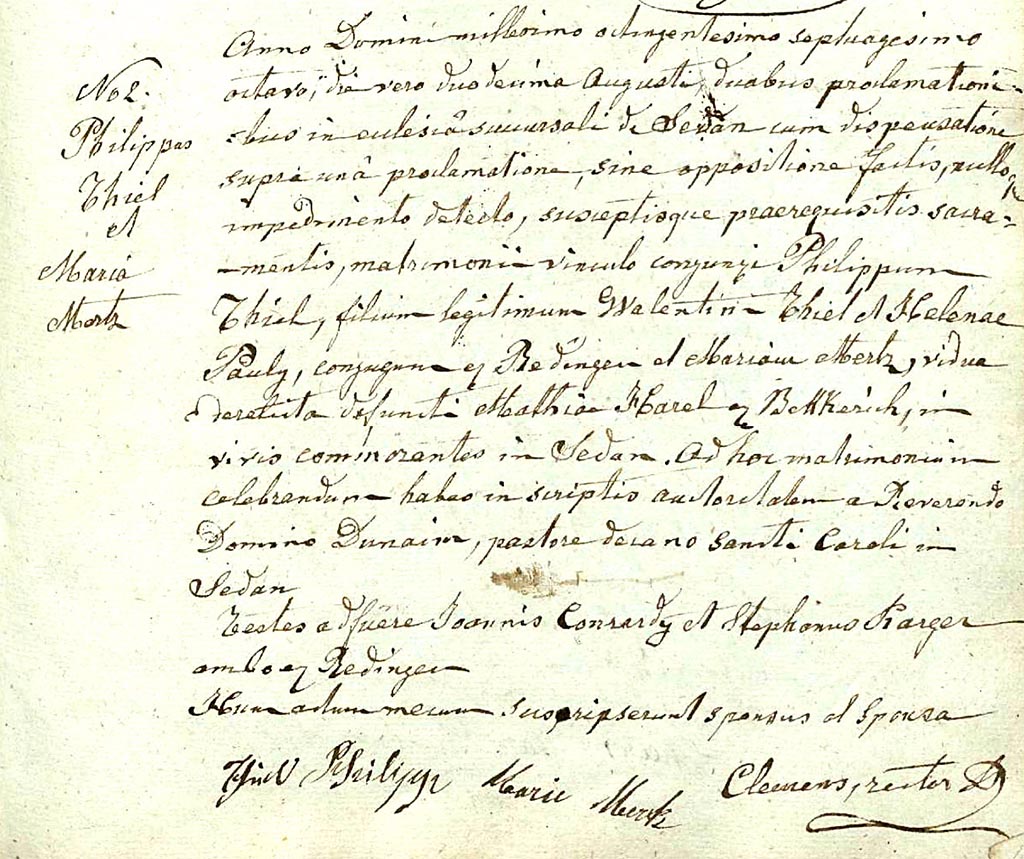 No 2.
Philippus
Thiel
et
Maria
Mertz
Anno Domini millesimo octingentesimo septuagesimo
octavo, die vero duodecima Augusti, duabus proclamationi-
-bus in eclesiâ succursali de Sedan cum dispensatione
supra unâ proclamatione, sine oppositione factis, nulloq
impedimento detecto, susceptisque praerequisitis sacra-
-mentis, matrimonii vinculo conjunxi Philippum
Thiel, filium legitimum Walentini Thiel et Helenae
Pauly, conjugum ex Redingen et Mariam Mertz, vidua
derelicta defuncti Mathiae Harel ex Bettkerich, in
vivis cominorantes in Sedan. Ad hoc matrimonium
celebrandum habeo in scriptis auctoritatem a Reverendo
Domino Dunaim, pastore decano sancti Caroli in
Sedan
Testes adfuêre Joannis Conrardy et Stephanus Karger
ambo ex Redingen
Hunc actum mecum suscripserunt sponsus et sponsa
Thiel Philipp Marie Clemens, rector